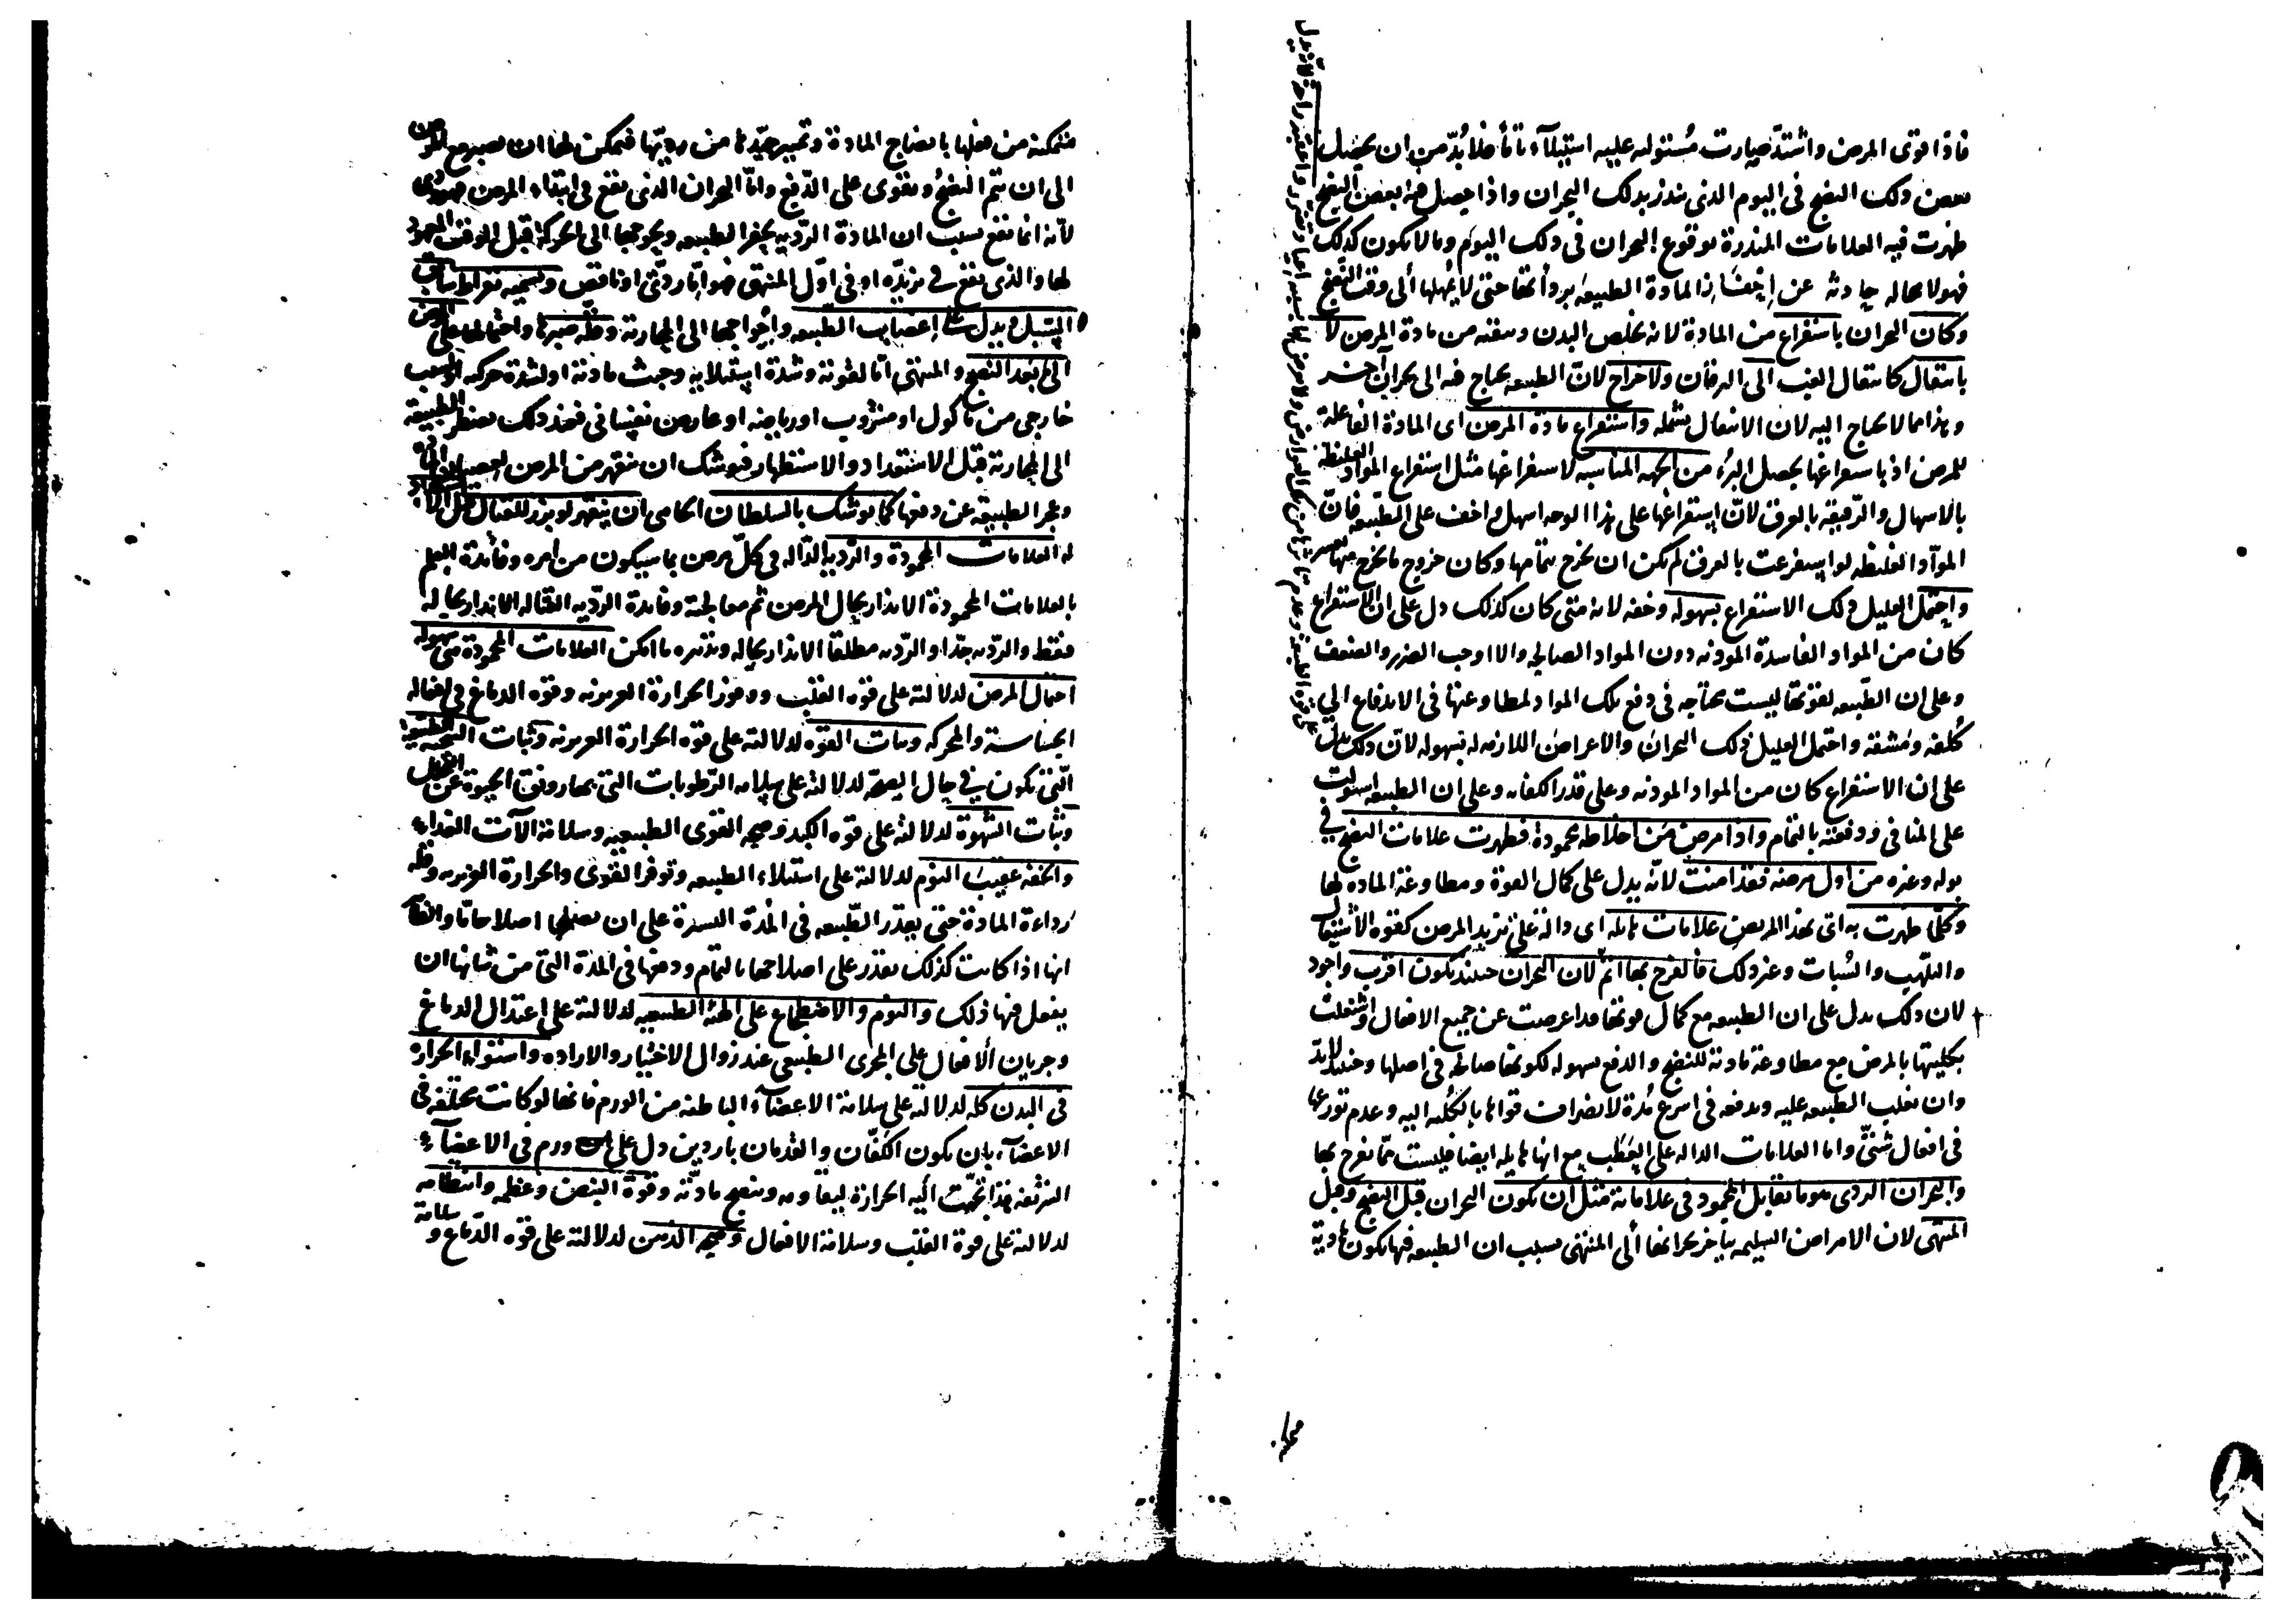 فاذا قوى المرض واشتد صارت مستوليه عليه استيلاء تاما فلا بد من ان يحصل
بعض ذلك النضج فى اليوم الذى ينذر بذلك البحران واذا حصل بعض النضج
ظهرت فيه العلامات المنذرة بوقوع البحران فى ذلك اليوم وما لا يكون كذلك
فهو لا محاله حادث عن المادة الطبيعه حتى لا يمهلها الى وقت النضج
وكان البحران باستفراغ من المادة لانه يخلص البدن وينقيه من مادة المرض لا
بانتقال كانتقال الغب الى اليرقان ولا خراج لان الطبيعه يحتاج فيه الى بحران آخر
وهذا مما لا يحتاج اليه لان الانتقال يشمله واستفراغ مادة المرض اى المادة الفاعلة
للمرض اذ باستفراغها يحصل البرء من الجهه المناسبه لاستفراغها مثل استفراغ المواد الغليظه
بالاسهال والرقيقه بالعرق لان استفراغها على هذا الوجه اسهل واخف على الطبيعه فان
المواد الغليظه لو استفرغت بالعرق لم يكن ان تخرج بتمامها وكان خروج ما يخرج منها
واحتمل العليل ذلك الاستفراغ بسهوله وخفه لانه متى كان كذلك دل على ان الاستفراغ
كان من المواد الفاسدة الموذيه دون المواد الصالحه والا اوجب الضرر والضعف
وعلى ان الطبيعه لقوتها ليست محتاجه فى دفع تلك المواد لمطاوعتها فى الاندفاع الى
كلفه ومشقه واحتمل العليل ذلك البحران والاعراض اللازمه له بسهوله لان ذلك يدل
على ان الاستفراغ كان من المواد الموذيه وعلى قدر الكفايه وعلى ان الطبيعه استولت
على المنافى ودفعته بالتمام واذا مرض من اخلاطه محمودة فظهرت علامات النضج فى
بوله وغيره من اول مرضه فقد امنت لانه يدل على كمال القوة ومطاوعة الماده لها
وكلما ظهرت به اى بهذا المريض علامات هايله اى دالة على تزيد المرض كقوه الاشتعال
والتلهب والسبات وغير ذلك فالفرح بها اتم لان البحران حينئذ يكون اقرب واجود
لان ذلك يدل على ان الطبيعه مع كمال قوتها قد اعرضت عن جميع الافعال واشتغلت
بكليتها بالمرض مع مطاوعة مادته للنضج والدفع بسهوله لكونها صالحه فى اصلها وحينئذ لا بد
وان تغلب الطبيعه عليه وتدفعه فى اسرع مدة لانصراف قواها بالكليه اليه وعدم توزعها
فى افعال شتى واما العلامات الداله على العطب مع انها هايله ايضا فليست مما يفرح بها
والبحران الردى هو ما يقابل المحمود فى علاماته مثل ان يكون البحران قبل النضج وقبل
المنتهى لان الامراض السليمه يتاخر بحرانها الى المنتهى بسبب ان الطبيعه فيها يكون
متمكنه من فعلها بانضاج المادة وتمييز جيدها من رديها فيمكن لها ان تصبر مع المرض
الى ان يتم النضج وتقوى على الدفع واما البحران الذى يقع فى ابتداء المرض فهو ردى
لانه انما يقع بسبب ان المادة الرديه يحفز الطبيعه ويحوجها الى الحركة قبل الوقت المحمود
لها والذى يقع فى تزيده او فى اول المنتهى فهو اما ردى او ناقص ويسميه بقراط سابق
السبيل ويدل على اغصاب الطبيعه واحواجها الى المحاربة وقلة صبرها واحتمالها على المرض
الى بعد النضج والمنتهى اما لقوته وشدة استيلايه وخبث مادته او لشدة حركه او لسبب
خارجى من ماكول او مشروب او رياضه او عارض نفسانى فعند ذلك تضطر الطبيعة
الى المحاربة قبل الاستعداد والاستظهار فيوشك ان تنقهر من المرض
وعجز الطبيعة عن دفعها كما يوشك بالسلطان الحامى ان ينقهر لو برز للقتال قبل الاستعداد
له العلامات المحمودة والرديه الداله فى كل مرض بما سيكون من امره وفائدة العلم
بالعلامات المحمودة الانذار بحال المرض ثم معالجته وفايدة الرديه القتاله الانذار بحاله
فقط والرديه جدا والرديه مطلقا الانذار بحاله وتدبيره ما امكن العلامات المحمودة هى سهوله
احتمال المرض لدلالته على قوه القلب ووفور الحرارة الغريزيه وقوه الدماغ فى افعاله
الحساسة والمحركه وثبات القوه لدلالته على قوه الحرارة الغريزيه وثبات السحنه الطبيعيه
التى تكون فى حال الصحه لدلالته على سلامه الرطوبات التى بها رونق الحيوة عن التحلل
وثبات الشهوة لدلالته على قوه الكبد وصحه القوى الطبيعيه وسلامة الات الغذاء
والخفه عقيب النوم لدلالته على استيلاء الطبيعه وتوفر القوى والحرارة الغريزيه وقله
رداءة المادة حتى يقدر الطبيعه فى المدة اليسيرة على ان تصلحها اصلاحا ما
انها اذا كانت كذلك تقدر على اصلاحها بالتمام ودفعها فى المدة التى من شانها ان
يفعل فيها ذلك والنوم والاضطجاع على الهيئه الطبيعيه لدلالته على اعتدال الدماغ
وجريان الافعال على المجرى الطبيعى عند زوال الاختيار والاراده واستواء الحراره
فى البدن كله لدلالته على سلامة الاعضاء الباطنه من الورم فانها لو كانت مختلفه فى
الاعضاء بان يكون الكفان والقدمان باردين دل على ورم فى الاعضاء
الشريفه قد اتجهت اليه الحرارة ليقاومه وينضج مادته وقوة النبض وعظمه وانتظامه
لدلالته على قوة القلب وسلامة الافعال وصحه الذهن لدلالته على قوه الدماغ وسلامة